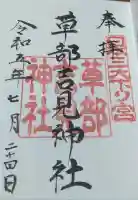 奉拝
日本三大下り宮
草部吉見神社
草部
神社
令和五年七月二十四日